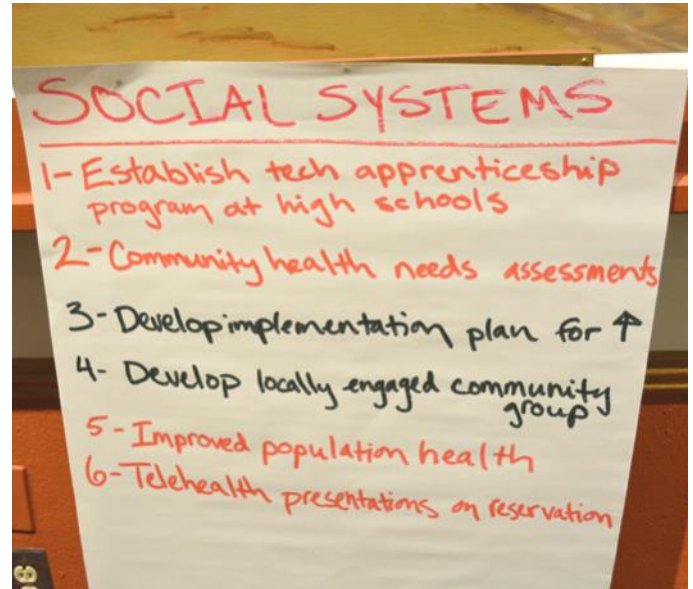 SOCIAL SYSTEMS
1- Establish tech apprenticeship
program at high schools
2- Community health needs assessments
3- Develop implementation plan for ↑
4- Develop locally engaged community
group
5- Improved population health
6- Telehealth presentations on reservation